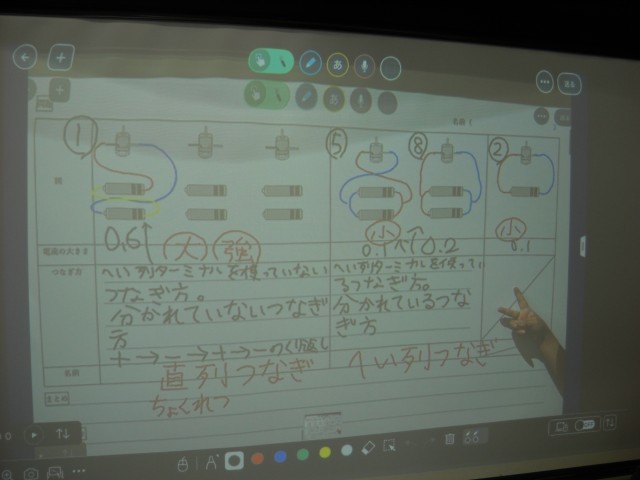 名前(
① ⑤ ⑧ ②
0.6 大 強 小 0.1 0.2 小 0.1
電流の大きさ
つなぎ方
へい列ターミナルを使っていない
つなぎ方。
分かれていないつなぎ
方
+→-→+→-のくり返し
直列つなぎ
ちょくれつ
へい列ターミナルを使ってい
るつなぎ方。
分かれているつな
ぎ方
へい列つなぎ
名前
まとめ